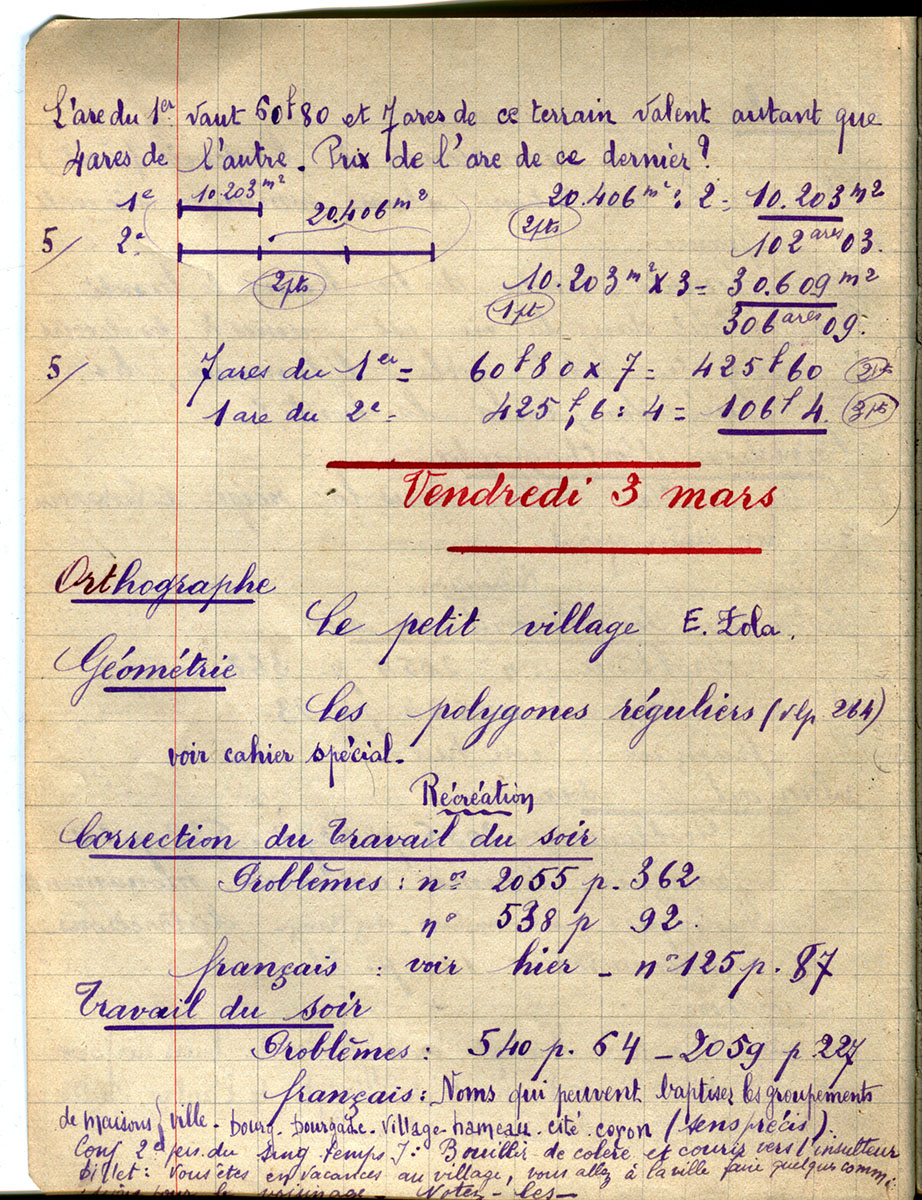 L'are du 1er vaut 60f80 et 7 ares de ce terrain valent autant que
4 ares de l'autre. Prix de l'are de ce dernier ?
1e 10.203 m² 20.406 m² : 2 = 10.203 m²
5/ 2e 20.406 m² 2pts 102 ares 03.
2pts 10.203 m² x 3 = 30.609 m²
1pt 306 ares 09.
5/ 7 ares du 1er = 60f80 x 7 = 425f60 2pts
1 are du 2e = 425f,6 : 4 = 106f4. 3pts
Vendredi 3 mars
Orthographe
Le petit village E. Zola.
Géométrie
Les polygones réguliers (vlp 264)
voir cahier spécial.
Récréation
Correction du travail du soir
Problèmes : nos 2055 p. 362
n° 538 p 92.
français : voir hier - n° 125 p. 87
Travail du soir
Problèmes : 540 p. 64 - 2059 p 227
français : Noms qui peuvent baptiser les groupements
de maisons } ville - bourg - bourgade - village - hameau - cité - coron (sens précis).
Conj 2e pers. du sing temps I : Bouillir de colère et courir vers l'insulteur
billet : Vous êtes en vacances au village, vous allez à la ville faire quelques commi-
ssions pour le voisinage - Notez-les -